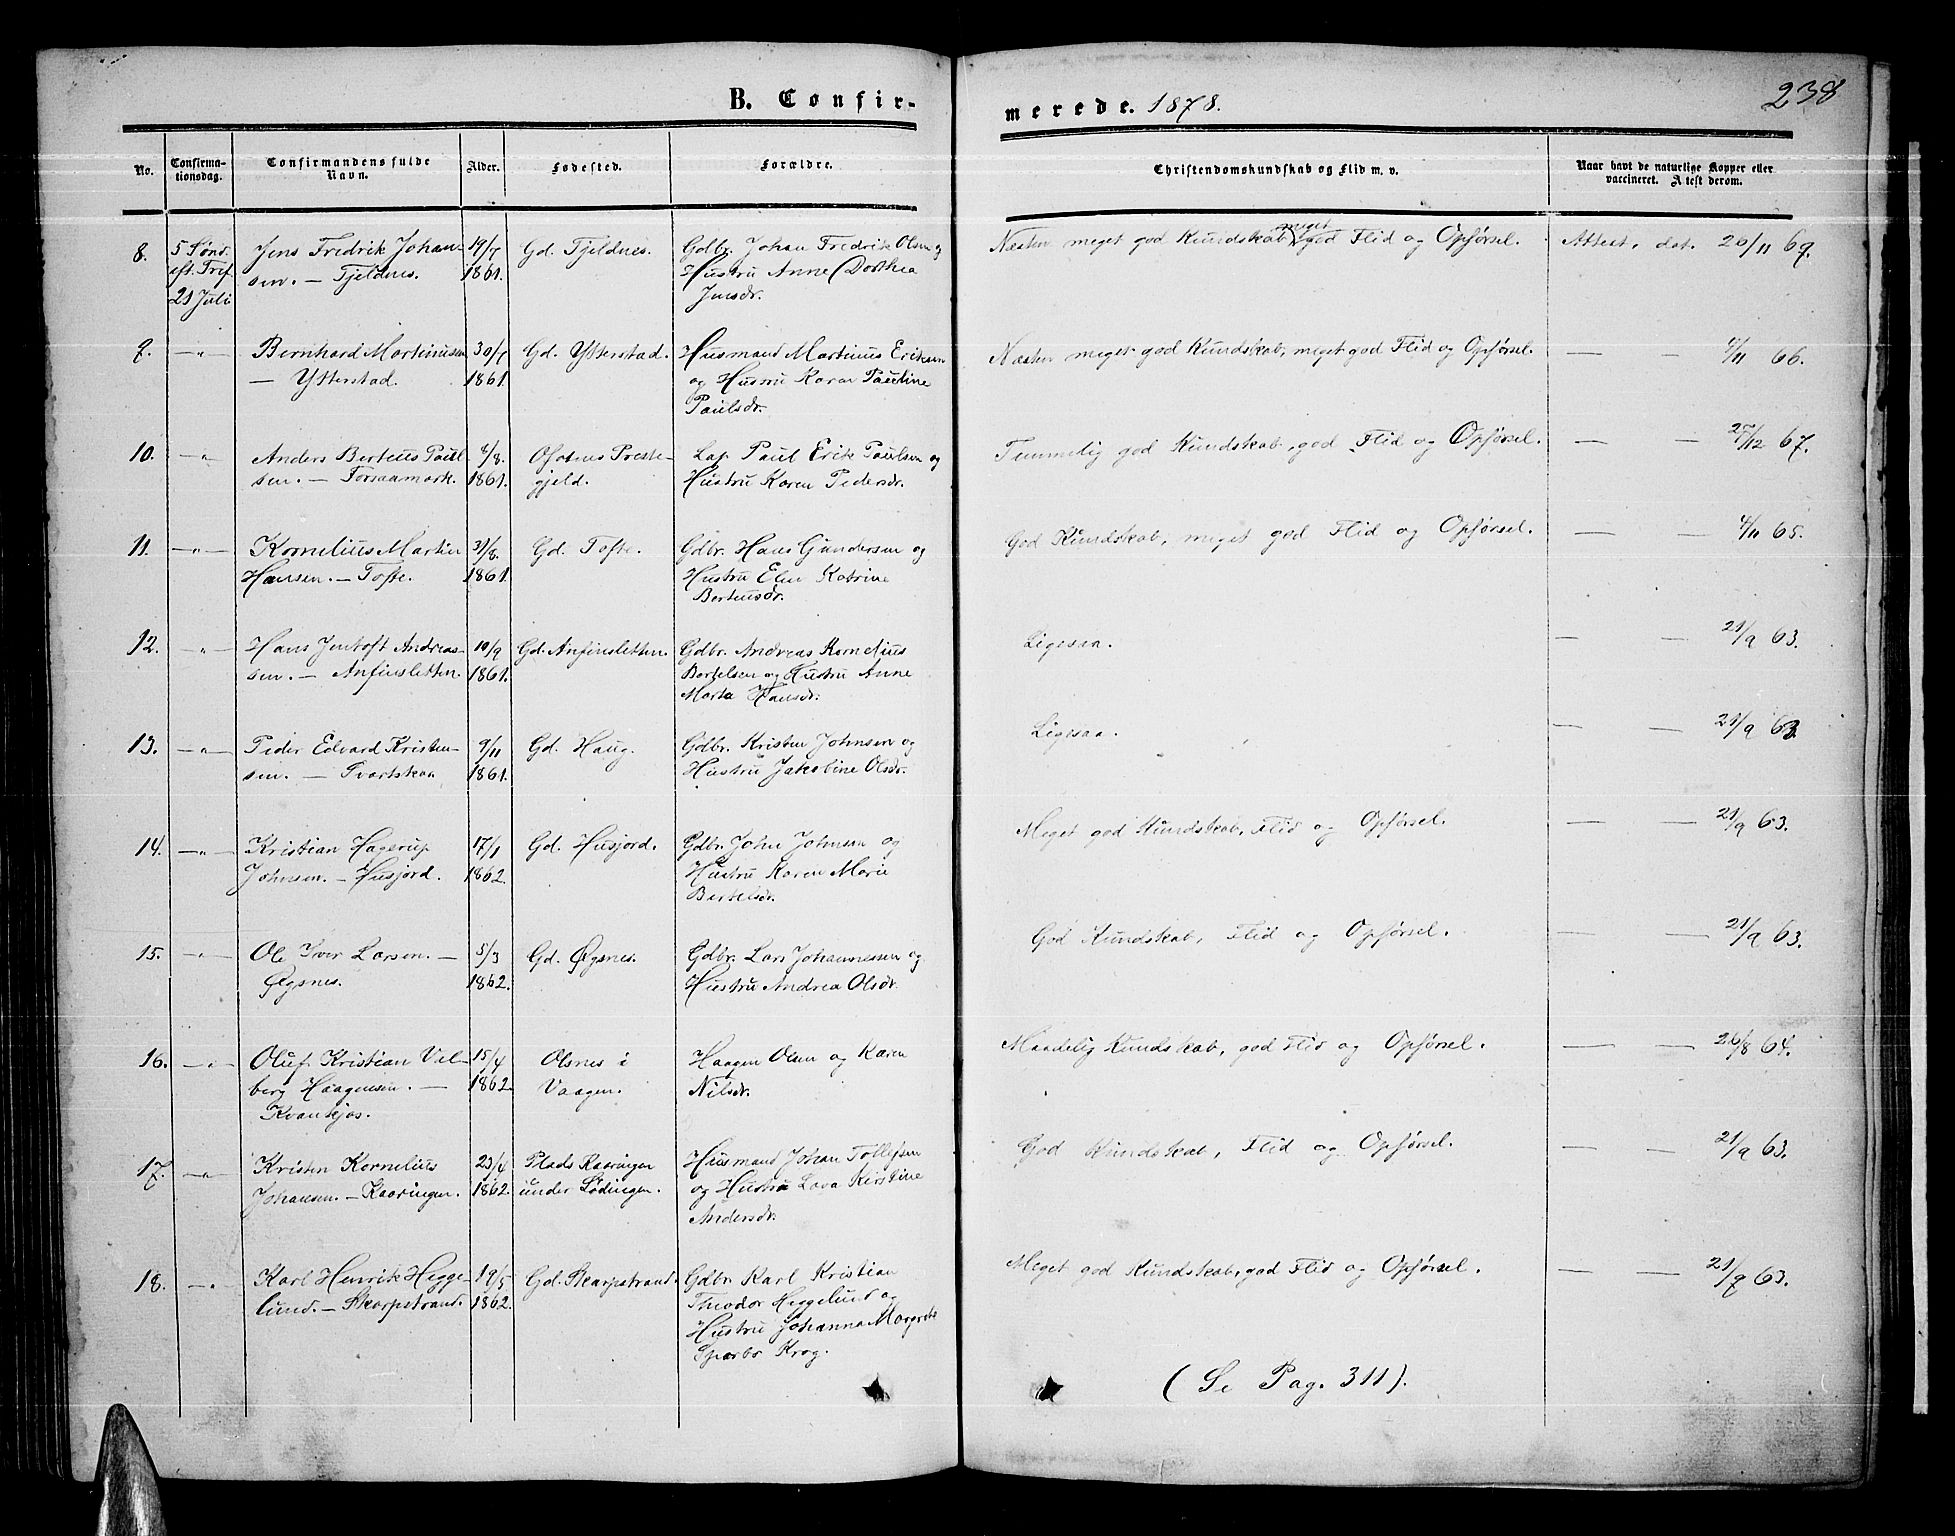 B. Confir-
merede. 1878.
238
No.
Confirma-
tionsdag.
Confirmandens fulde
Navn.
Alder.
Fødested.
Forældre.
Christendomskundskab og Flid m. v.
Naar havt de naturlige Kopper eller
vaccineret. Attest derom.
8. 5 Sønd. Jens Fredrik Johan- 19/7 Gd. Tjeldnes. Gdbr. Johan Fredrik Olsen og Næsten meget god Kundskab, meget god Flid og Opførsel. Attest, dat. 20/11 69.
eft. Tref. sen. — Tjeldnes. 1861. Hustru Anne Dorthea
21 Juli Jensdr.
9. —"— Bernhard Martinusen 30/7 Gd. Ytterstad. Husmand Martinus Eriksen Næsten meget god Kundskab, meget god Flid og Opførsel. — — 4/11 66.
— Ytterstad. 1861. og Hustru Karen Pauline
Paulsdr.
10. —"— Anders Berteus Paul- 4/8. Ofotens Preste- Lap Paul Erik Paulsen og Temmelig god Kundskab, god Flid og Opførsel. — — 27/12 67.
sen. — Forsaamark. 1861. gjeld. Hustru Karen Pedersdr.
11. —"— Kornelius Martin 31/8. Gd. Tofte. Gdbr. Hans Gundersen og God Kundskab, meget god Flid og Opførsel. — — 4/11 65.
Hansen. — Tofte. 1861. Hustru Elen Katrine
Berteusdr.
12. —"— Hans Jentoft Andreas- 10/9 Gd. Anfinsletten. Gdbr. Andreas Kornelius Ligesaa. — — 21/9 63.
sen. — Anfinsletten. 1861. Bertelsen og Hustru Anne
Marta Hansdr.
13. —"— Peder Edvard Kristen- 9/11 Gd. Haug. Gdbr. Kristen Johnsen og Ligesaa. — — 21/9 63.
sen. — 1861. Hustru Jakobine Olsdr.
14. —"— Kristian Hagerup 17/1 Gd. Husjord. Gdbr. John Johnsen og Meget god Kundskab, Flid og Opførsel. — — 21/9 63.
Johnsen. — Husjord. 1862. Hustru Karen Marie
Bertelsdr.
15. —"— Ole Iver Larsen. — 5/3 Gd. Øgsnes. Gdbr. Lars Johannessen og God Kundskab, Flid og Opførsel. — — 21/9 63.
Øgsnes. 1862. Hustru Andrea Olsdr.
16. —"— Oluf Kristian Vel- 15/4 Olsnes i Haagen Olsen og Karen Maadelig Kundskab, god Flid og Opførsel. — — 26/8 64.
berg Haagensen. — 1862. Vaagen. Nilsdr.
17. —"— Kristen Kornelius 23/4 Plads Kaaringen Husmand Johan Tollefsen God Kundskab, Flid og Opførsel. — — 21/9 63.
Johansen. — Kaaringen. 1862. under Lødingen. og Hustru Lava Kirstine
Andersdr.
18. —"— Karl Henrik Hegge- 19/5 Gd. Skarpstrand. Gdbr. Karl Kristian Meget god Kundskab, god Flid og Opførsel. — — 21/9 63.
lund. — Skarpstrand. 1862. Theodor Heggelund og
Hustru Johanna Margrete
Sparbo Krog.
(Se Pag. 311).